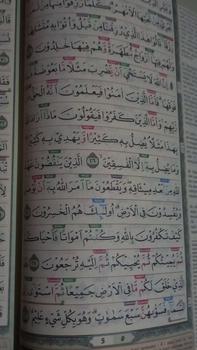 تَحْتِهَا الْأَنْهَٰرُ كُلَّمَا رُزِقُوا مِنْهَا
هَٰذَا الَّذِي رُزِقْنَا مِن قَبْلُ وَأُتُوا بِهِ مُتَشَٰبِهًا
وَلَهُمْ فِيهَا أَزْوَٰجٌ مُّطَهَّرَةٌ وَهُمْ فِيهَا خَٰلِدُونَ
إِنَّ اللَّهَ لَا يَسْتَحْيِۦ أَن يَضْرِبَ مَثَلًا مَّا بَعُوضَةً
فَوْقَهَا فَأَمَّا الَّذِينَ ءَامَنُوا فَيَعْلَمُونَ أَنَّهُ الْحَقُّ
رَّبِّهِمْ وَأَمَّا الَّذِينَ كَفَرُوا فَيَقُولُونَ مَاذَا أَرَادَ
بِهَٰذَا مَثَلًا يُضِلُّ بِهِ كَثِيرًا وَيَهْدِي بِهِ كَثِيرًا
وَمَا يُضِلُّ بِهِ إِلَّا الْفَٰسِقِينَ ٢٦ الَّذِينَ يَنقُضُونَ
مِن بَعْدِ مِيثَٰقِهِ وَيَقْطَعُونَ مَا أَمَرَ اللَّهُ بِهِ أَن
وَيُفْسِدُونَ فِي الْأَرْضِ أُولَٰئِكَ هُمُ الْخَٰسِرُونَ
كَيْفَ تَكْفُرُونَ بِاللَّهِ وَكُنتُمْ أَمْوَٰتًا فَأَحْيَٰكُمْ
ثُمَّ يُمِيتُكُمْ ثُمَّ يُحْيِيكُمْ ثُمَّ إِلَيْهِ تُرْجَعُونَ
الَّذِي خَلَقَ لَكُم مَّا فِي الْأَرْضِ جَمِيعًا ثُمَّ اسْتَوَىٰ
السَّمَاءِ فَسَوَّىٰهُنَّ سَبْعَ سَمَٰوَٰتٍ وَهُوَ بِكُلِّ شَيْءٍ عَلِيمٌ
5